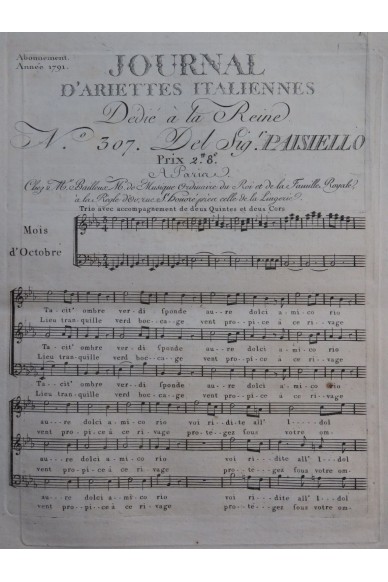 Abonnement.
Année 1791.
JOURNAL
D'ARIETTES ITALIENNES
Dedié à la Reine
N.º 307. Del Sig.r PAISIELLO
Prix 2.# 8.s
A Paris
Chez M.r Bailleux M.d de Musique Ordinaire du Roi et de la Famille Royale
à la Règle d'Or, rue S.t Honoré près celle de la Lingerie
Trio avec accompagnement de deux Quintes et deux Cors
Mois
d'Octobre
Ta-cit' ombre ver-di sponde au--re dolci a-mi-co rio
Lieu tran-quille verd boc-ca-ge vent pro-pi-ce à ce ri-vage
Ta-cit' ombre ver-di sponde au--re dolci a-mi-co rio
Lieu tran-quille verd boc-ca-ge vent pro-pi-ce à ce ri-vage
Ta-cit' ombre ver-di sponde au--re dolci a-mi-co rio
Lieu tran-quille verd boc-ca-ge vent pro-pi-ce à ce ri-vage
au---re dolci a-mi-co rio voi ri-di-te all' I---dol
vent pro-pi-ce à ce ri-vage pro-té--gez sous votre om-
au---re dolci a-mi-co rio voi ri--dite all' I---dol
vent pro-pi-ce à ce ri-vage pro-té--gez sous votre om-
au---re dolci a-mi-co rio voi ri--dite all' I---dol
vent pro-pi-ce à ce ri-vage pro-té--gez sous votre om-